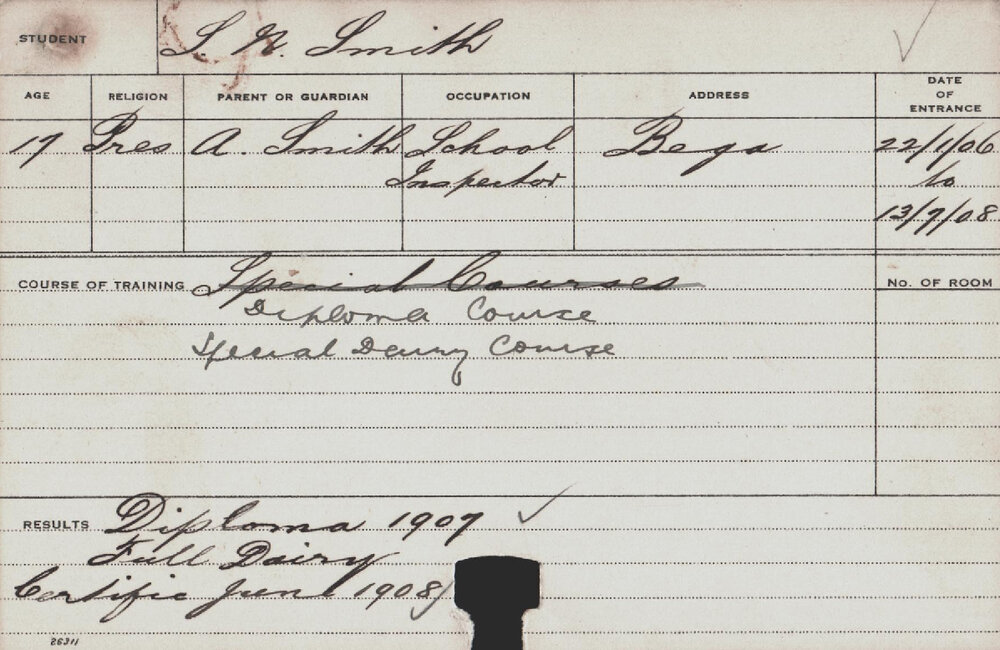 STUDENT S. N. Smith
AGE RELIGION PARENT OR GUARDIAN OCCUPATION ADDRESS DATE OF ENTRANCE
17 Pres A. Smith School Bega 22/1/06
Inspector to
13/7/08
COURSE OF TRAINING Special Courses No. OF ROOM
Diploma Course
Special Dairy Course
RESULTS Diploma 1907 ✓
Full Dairy
Certific June 1908
26311